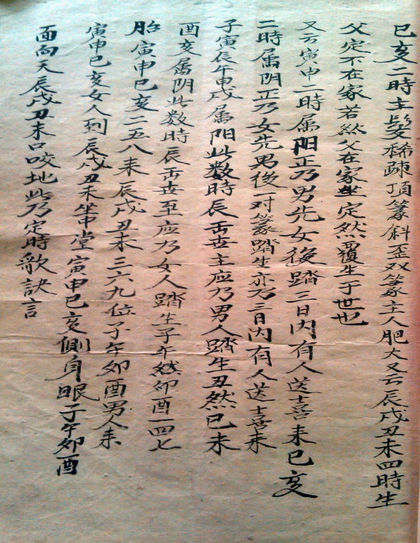 巳亥二时主髮稀疎頂篆斜歪双篆主人肥大又云辰戌丑未四時生
父定不在家若然父在家坐定然覆生于世也
又云寅申二時属阳正乃男先女後踏三日内有人送喜来巳亥
二時属阴正乃女先男後一对篆踏生亦乃三日内有人送喜来
子寅辰午申戌属阳此数時辰出世主应乃男人踏生丑然巳未
酉亥属阴此数時辰出世至应乃女人踏生子午线卯酉一四七
胎寅申巳亥二五八来辰戌丑未三六九位子午卯酉男人来
寅申巳亥女人到辰戌丑未筆堂寅申巳亥側身眠子午卯酉
面向天辰戌丑未口咬地此乃定時歌訣言